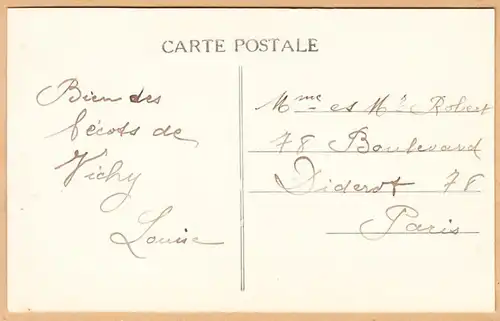 CARTE POSTALE
Bien des
bécots de
Vichy
Louise
Mme et Mlle Robert
78 Boulevard
Diderot 78
Paris